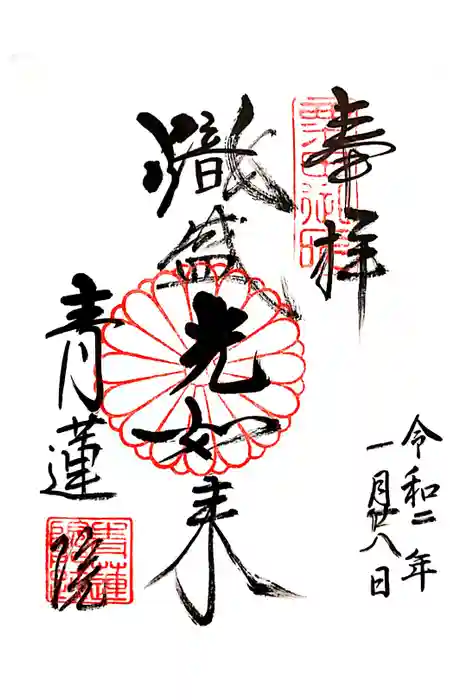 奉拝
令和二年
一月廿八日
熾盛光如来
青蓮院